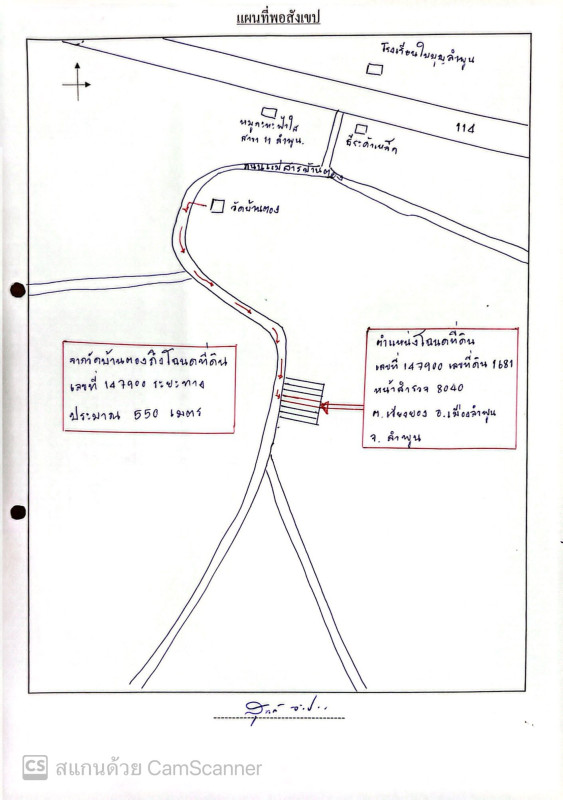 แผนที่พอสังเขป
โรงเรียนใบบุญลำพูน
หมูกะทะฟ้าใส
สาขา 11 ลำพูน.
ธีระค้าเหล็ก
114
ถนนแม่สารบ้านตอง
วัดบ้านตอง
จากวัดบ้านตองถึงโฉนดที่ดิน
เลขที่ 147900 ระยะทาง
ประมาณ 550 เมตร
ตำแหน่งโฉนดที่ดิน
เลขที่ 147900 เลขที่ดิน 1681
หน้าสำรวจ 8040
ต. เวียงยอง อ.เมืองลำพูน
จ. ลำพูน
CS สแกนด้วย CamScanner